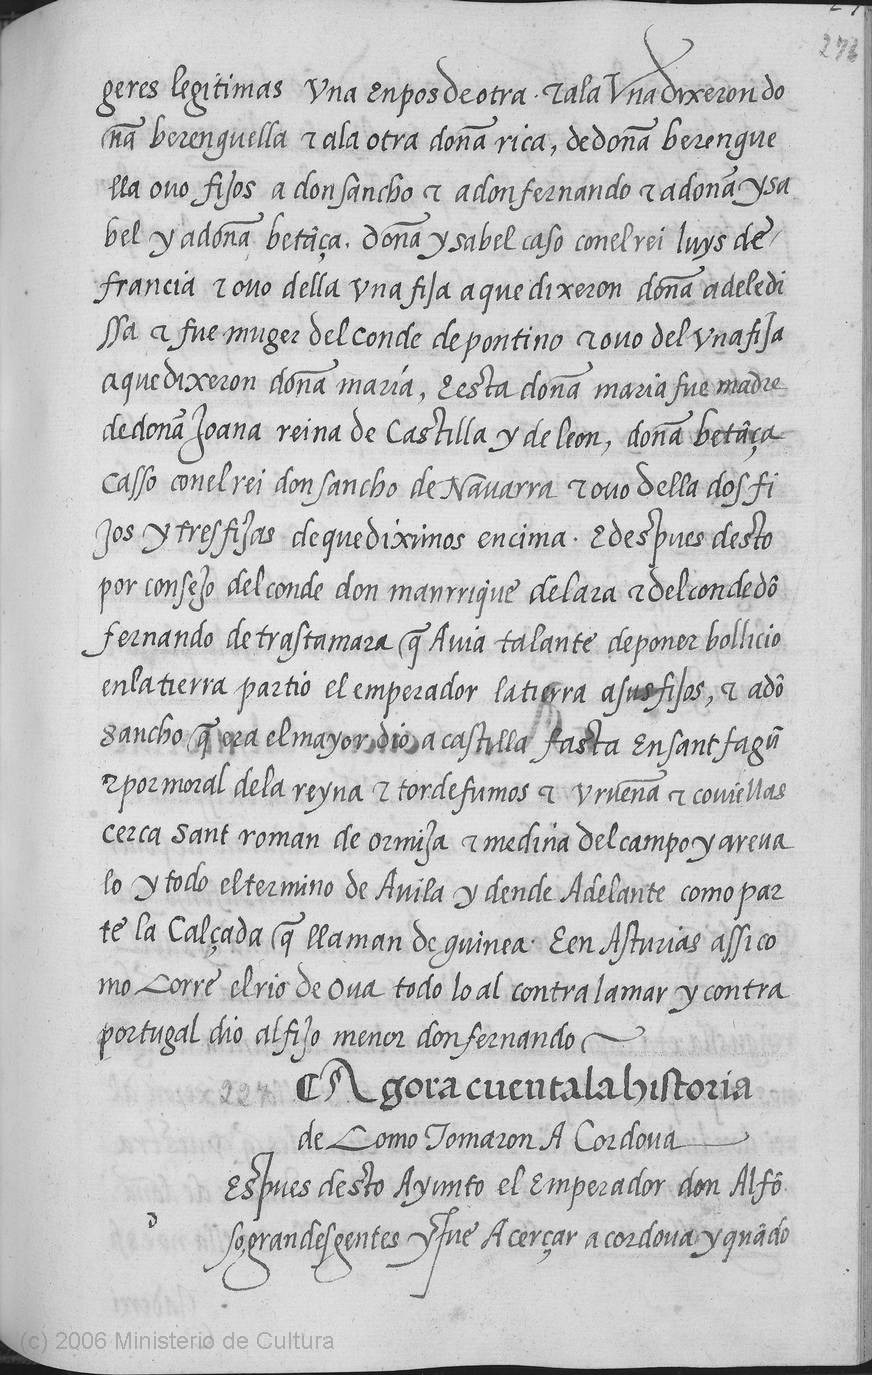 273
geres legitimas vna enpos de otra · τ ala Vna dixeron do
ña berenguella τ ala otra doña rica, de doña berengue
lla ouo fijos a don sancho τ a don fernando τ a doña ysa
bel y a doña betãça. doña ysabel caso conel rei luys de
francia τ ouo della vna fija a que dixeron doña adeledi
ssa τ fue muger del conde de pontino τ ouo del vna fija
a que dixeron doña maría, E esta doña maria fue madre
de doña Joana reina de Castilla y de leon, doña betãça
casso conel rei don sancho de Nauarra τ ouo della dos fi
jos y tres fijas de que diximos encima · E despues desto
por consejo del conde don manrrique de lara τ del conde dõ
fernando de trastamara q̃ Auia talante de poner bollicio
enla tierra partio el emperador la tierra a sus fijos, τ a dõ
sancho q̃ era el mayor dio a castilla fasta en sant fagũ
τ por moral dela reyna τ tordefumos τ vrueña τ couiellas
cerca sant roman de ormija τ medina del campo y areua
lo y todo el termino de Auila y dende Adelante como par
te la Calçada q̃ llaman de guinea · E en Asturias assi co
mo Corre el rio de Oua todo lo al contra la mar y contra
portugal dio al fijo menor don fernando
227 ¶ Agora cuenta la historia
de Como Tomaron A Cordoua
d Espues desto Ayunto el Emperador don Alfõ
so grandes gentes y fue A cerçar a cordoua y quãdo
(c) 2006 Ministerio de Cultura